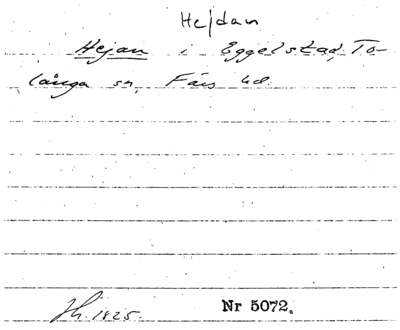 Hejdan
Hejan i Eggelstad, To-
långa sn, Färs hd.
Hh. 1825.
Nr 5072.